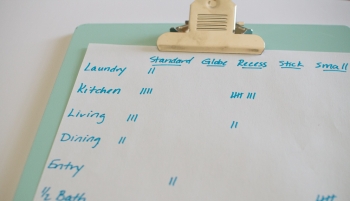 Standard Globe Recess Stick Small
Laundry II
Kitchen IIII IIII III
Living III II
Dining II
Entry
1/2 Bath II IIII